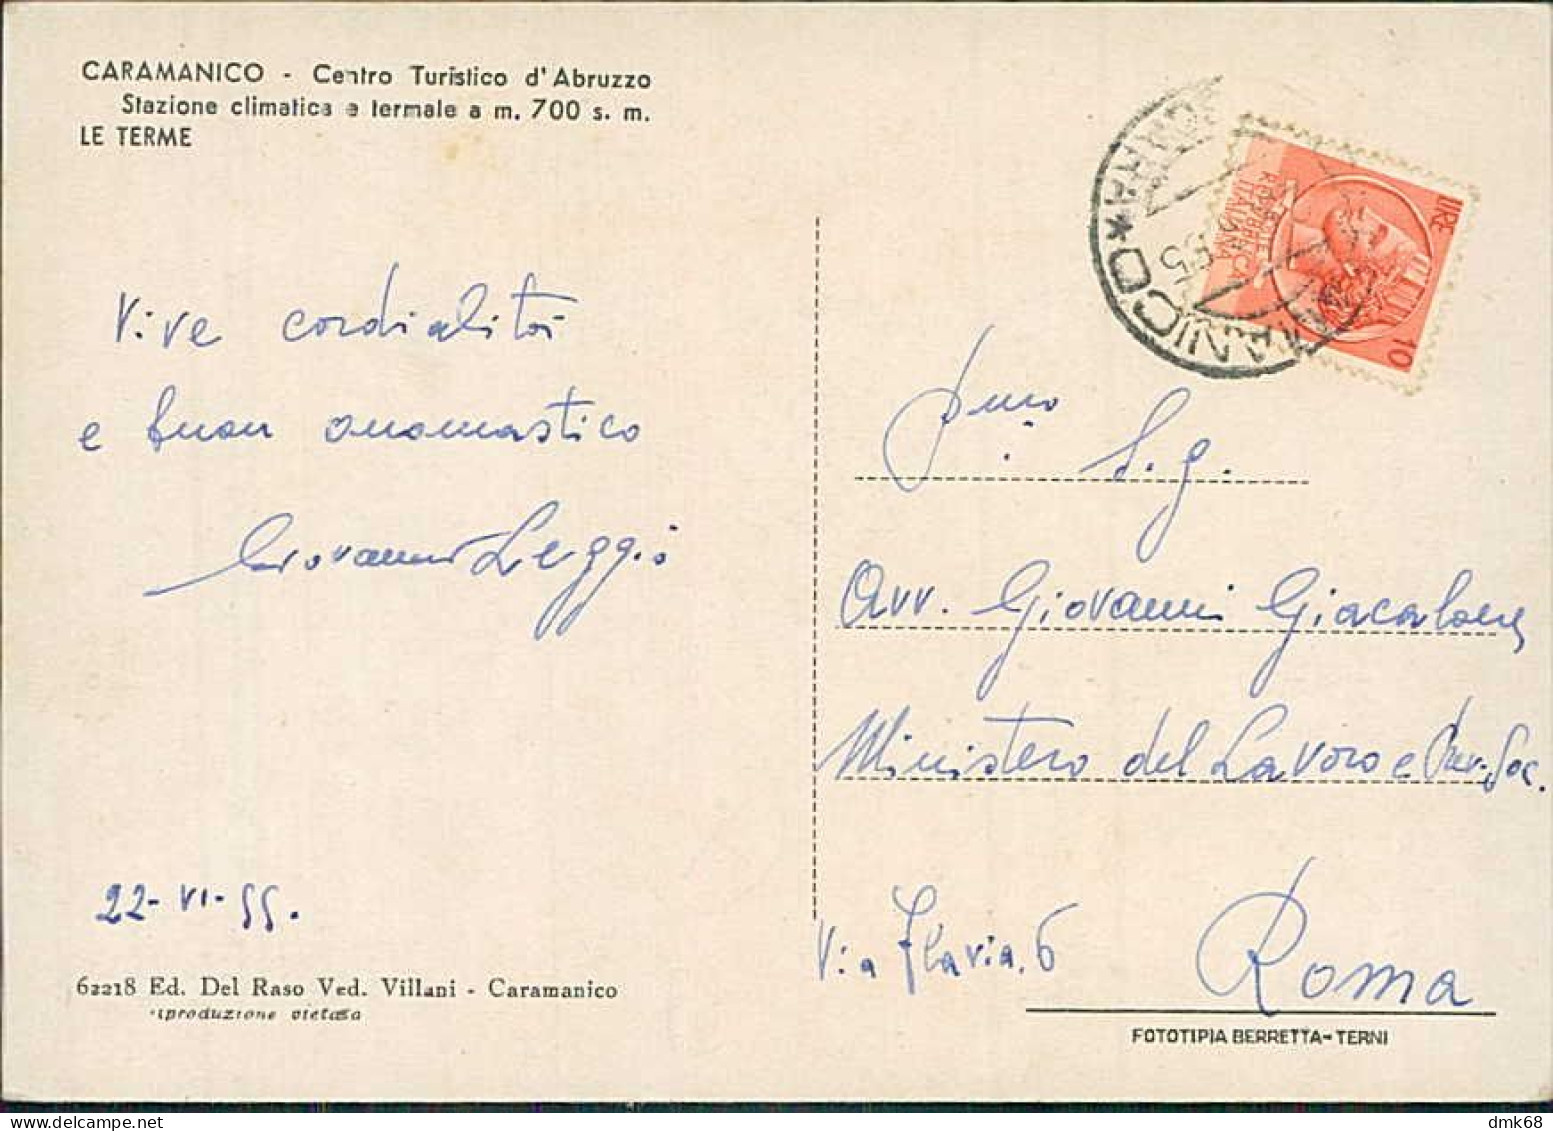 CARAMANICO - Centro Turistico d'Abruzzo
Stazione climatica e termale a m. 700 s. m.
LE TERME
CARAMANICO
LIRE
REPUBBLICA
ITALIANA
10
Vive cordialità
e buon onomastico
Giovanni Leggio
22-VI-55.
62218 Ed. Del Raso Ved. Villani - Caramanico
riproduzione vietata
S. g.
Avv. Giovanni Giacalone
Ministero del Lavoro e Prev. Soc.
Via Flavia. 6
Roma
FOTOTIPIA BERRETTA-TERNI
dmk68